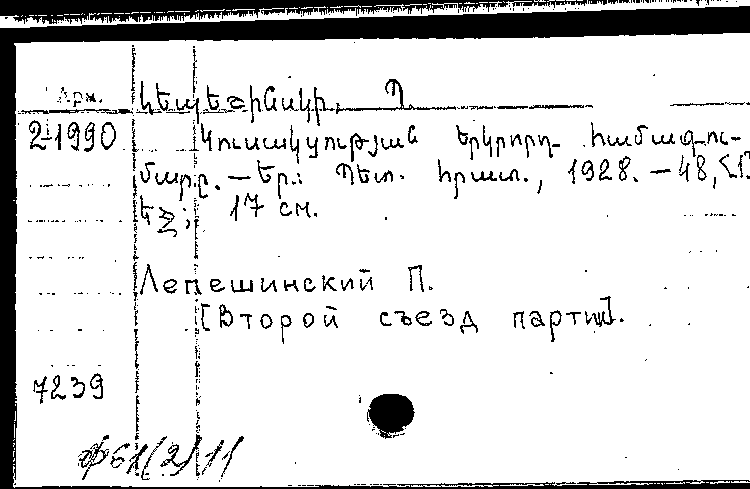 Арм.
Լեպեշինսկի, Պ.
2-1990 Կուսակցության երկրորդ համագու-
մարը. — Եր.: Պետ. հրատ., 1928. — 48, [1]
եջ; 17 см.
Лепешинский П.
[Второй съезд партии].
7239
Ф61(2)11